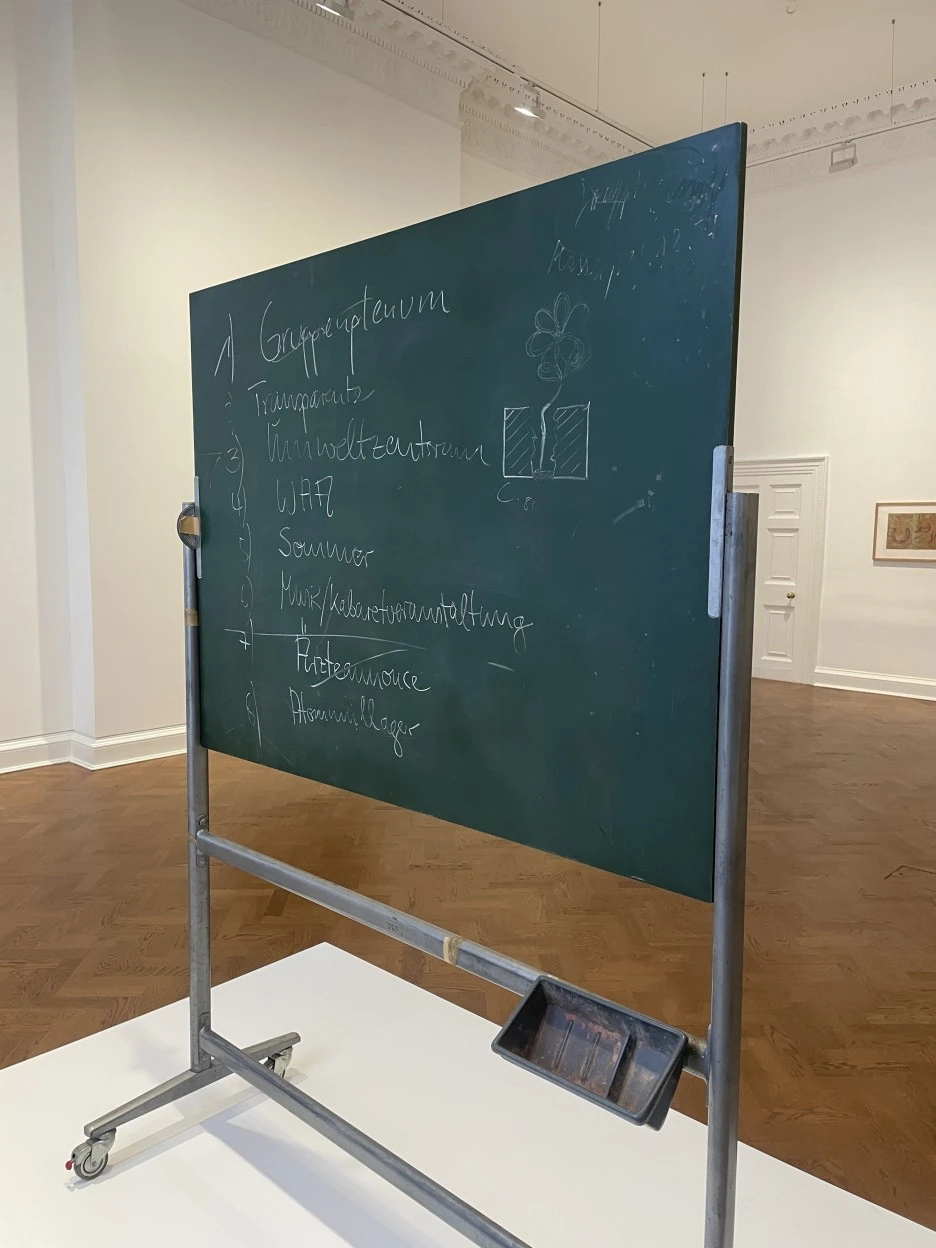 1) Gruppenplenum
2) Transparente
3) Umweltzentrum
4) WAA
5) Sommer
6) Musik/Kabarettveranstaltung
7) Ärzteannonce
8) Atommüllager